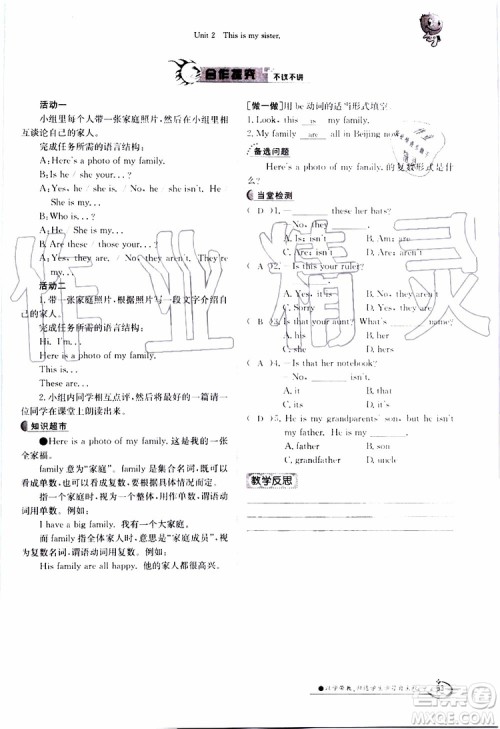 Unit 2 This is my sister.
合作探究 不议不讲
活动一
小组里每个人带一张家庭照片,小组内相
互谈论自己的家人。
完成任务所需的语言结构:
A: Here's a photo of my family.
B: Is he / she your...?
A: Yes, he / she is. /No, he / she isn't.
This is my...
B: Who is...?
A: He / She is my...
B: Are these / those your...?
A: Yes, they are. / No, they aren't. They're
my...
活动二
1. 带一张家庭照片,根据照片写一段文字介绍
自己的家人。
完成任务所需的语言结构:
Hi, I'm...
Here is a photo of my family.
This is...
These are...
2. 小组内同学相互点评,最后每一组请一
位同学在课堂上朗读出来。
知识超市
●Here is a photo of my family. 这是我的一张
全家福。
family 意为“家庭”。family 是集合名词,既可以
看成单数,也可以看成复数。
指一个家庭时,看作整体,用作单数,谓语动
词用单数。例如:
I have a big family. 我有一个大家庭。
family 用于指全体家人时,意思是“家庭成员”,
视为复数名词,谓语动词用复数。例如:
His family are all happy. 他的家人都很高兴。
[做一做] 用 be 动词的适当形式填空。
1. Look, this is my family.
2. My family are all in Beijing now.
备选问题
Here's a photo of my family. 的复数形式是什
么?
当堂检测
( D )1. — ______ these her hats?
— No, they ______.
A. Is; isn't B. Is; aren't
C. Are; isn't D. Are; aren't
( A )2. — Is this your ruler?
— ______.
A. Yes, it is B. No, it is
C. Sorry D. Yes, they are
( B )3. Is that your aunt? What's ______ name?
A. he B. her
C. she D. his
( A )4. — Is that her notebook?
— No, ______ isn't.
A. it B. that
C. this D. its
( D )5. He is my grandparents' son, but he isn't
my father. He is my ______.
A. father B. son
C. grandfather D. uncle
教学反思
作业精灵